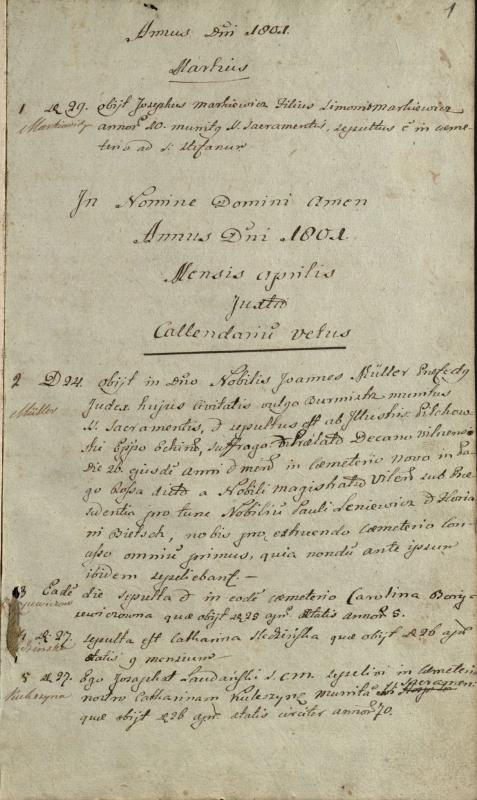 1
Annus Dñi 1801.
Martius
1 D 29. obijt Josephus Markiewicz Filius Simonis Markiewicz
Markiewicz annor 20. munitq SS. Sacramentis, sepultus ē in cæme-
terio ad S. Stefanum
In Nomine Domini Amen
Annus Dñi 1801
Mensis Aprilis
Juxta
Callendariū vetus
2 D 24. obijt in Dño Nobilis Joannes Müller
Müller Judex hujus Civitatis vulgo Burmistrz munitus
SS. Sacramentis, & sepultus est ab Illustris. Pilchow-
ski Eppo Echin, suffrag. Prælato Decano Vilnens
die 26. ejusdē Anni & mens in Cæmeterio novo in Pa-
go Rossa dicto a Nobili Magistratu Vilen sub Præ-
sidentia pro tunc Nobiliū Pauli Leniewicz & Floria-
ni Bietsch, nobis pro exhuendo cæmeterio con-
omniū primus, quia nondū ante ipsum
ibidem sepeliebant.
3 Eadē die sepulta & in eodē cæmeterio Carolina Bory-
quæ obijt D 23 apr ætatis annor 5.
4 D 27. sepulta est Catharina quæ obijt D 26 apr
ætatis 9 mensium
5 D 27. Ego Josaphat S. C. M. sepelivi in Cæmeterio
Kukszyna novo Catharinam Kukszynę munitā SS. Sacramen.
quæ obijt D 26 apr. ætatis circiter annor 70.